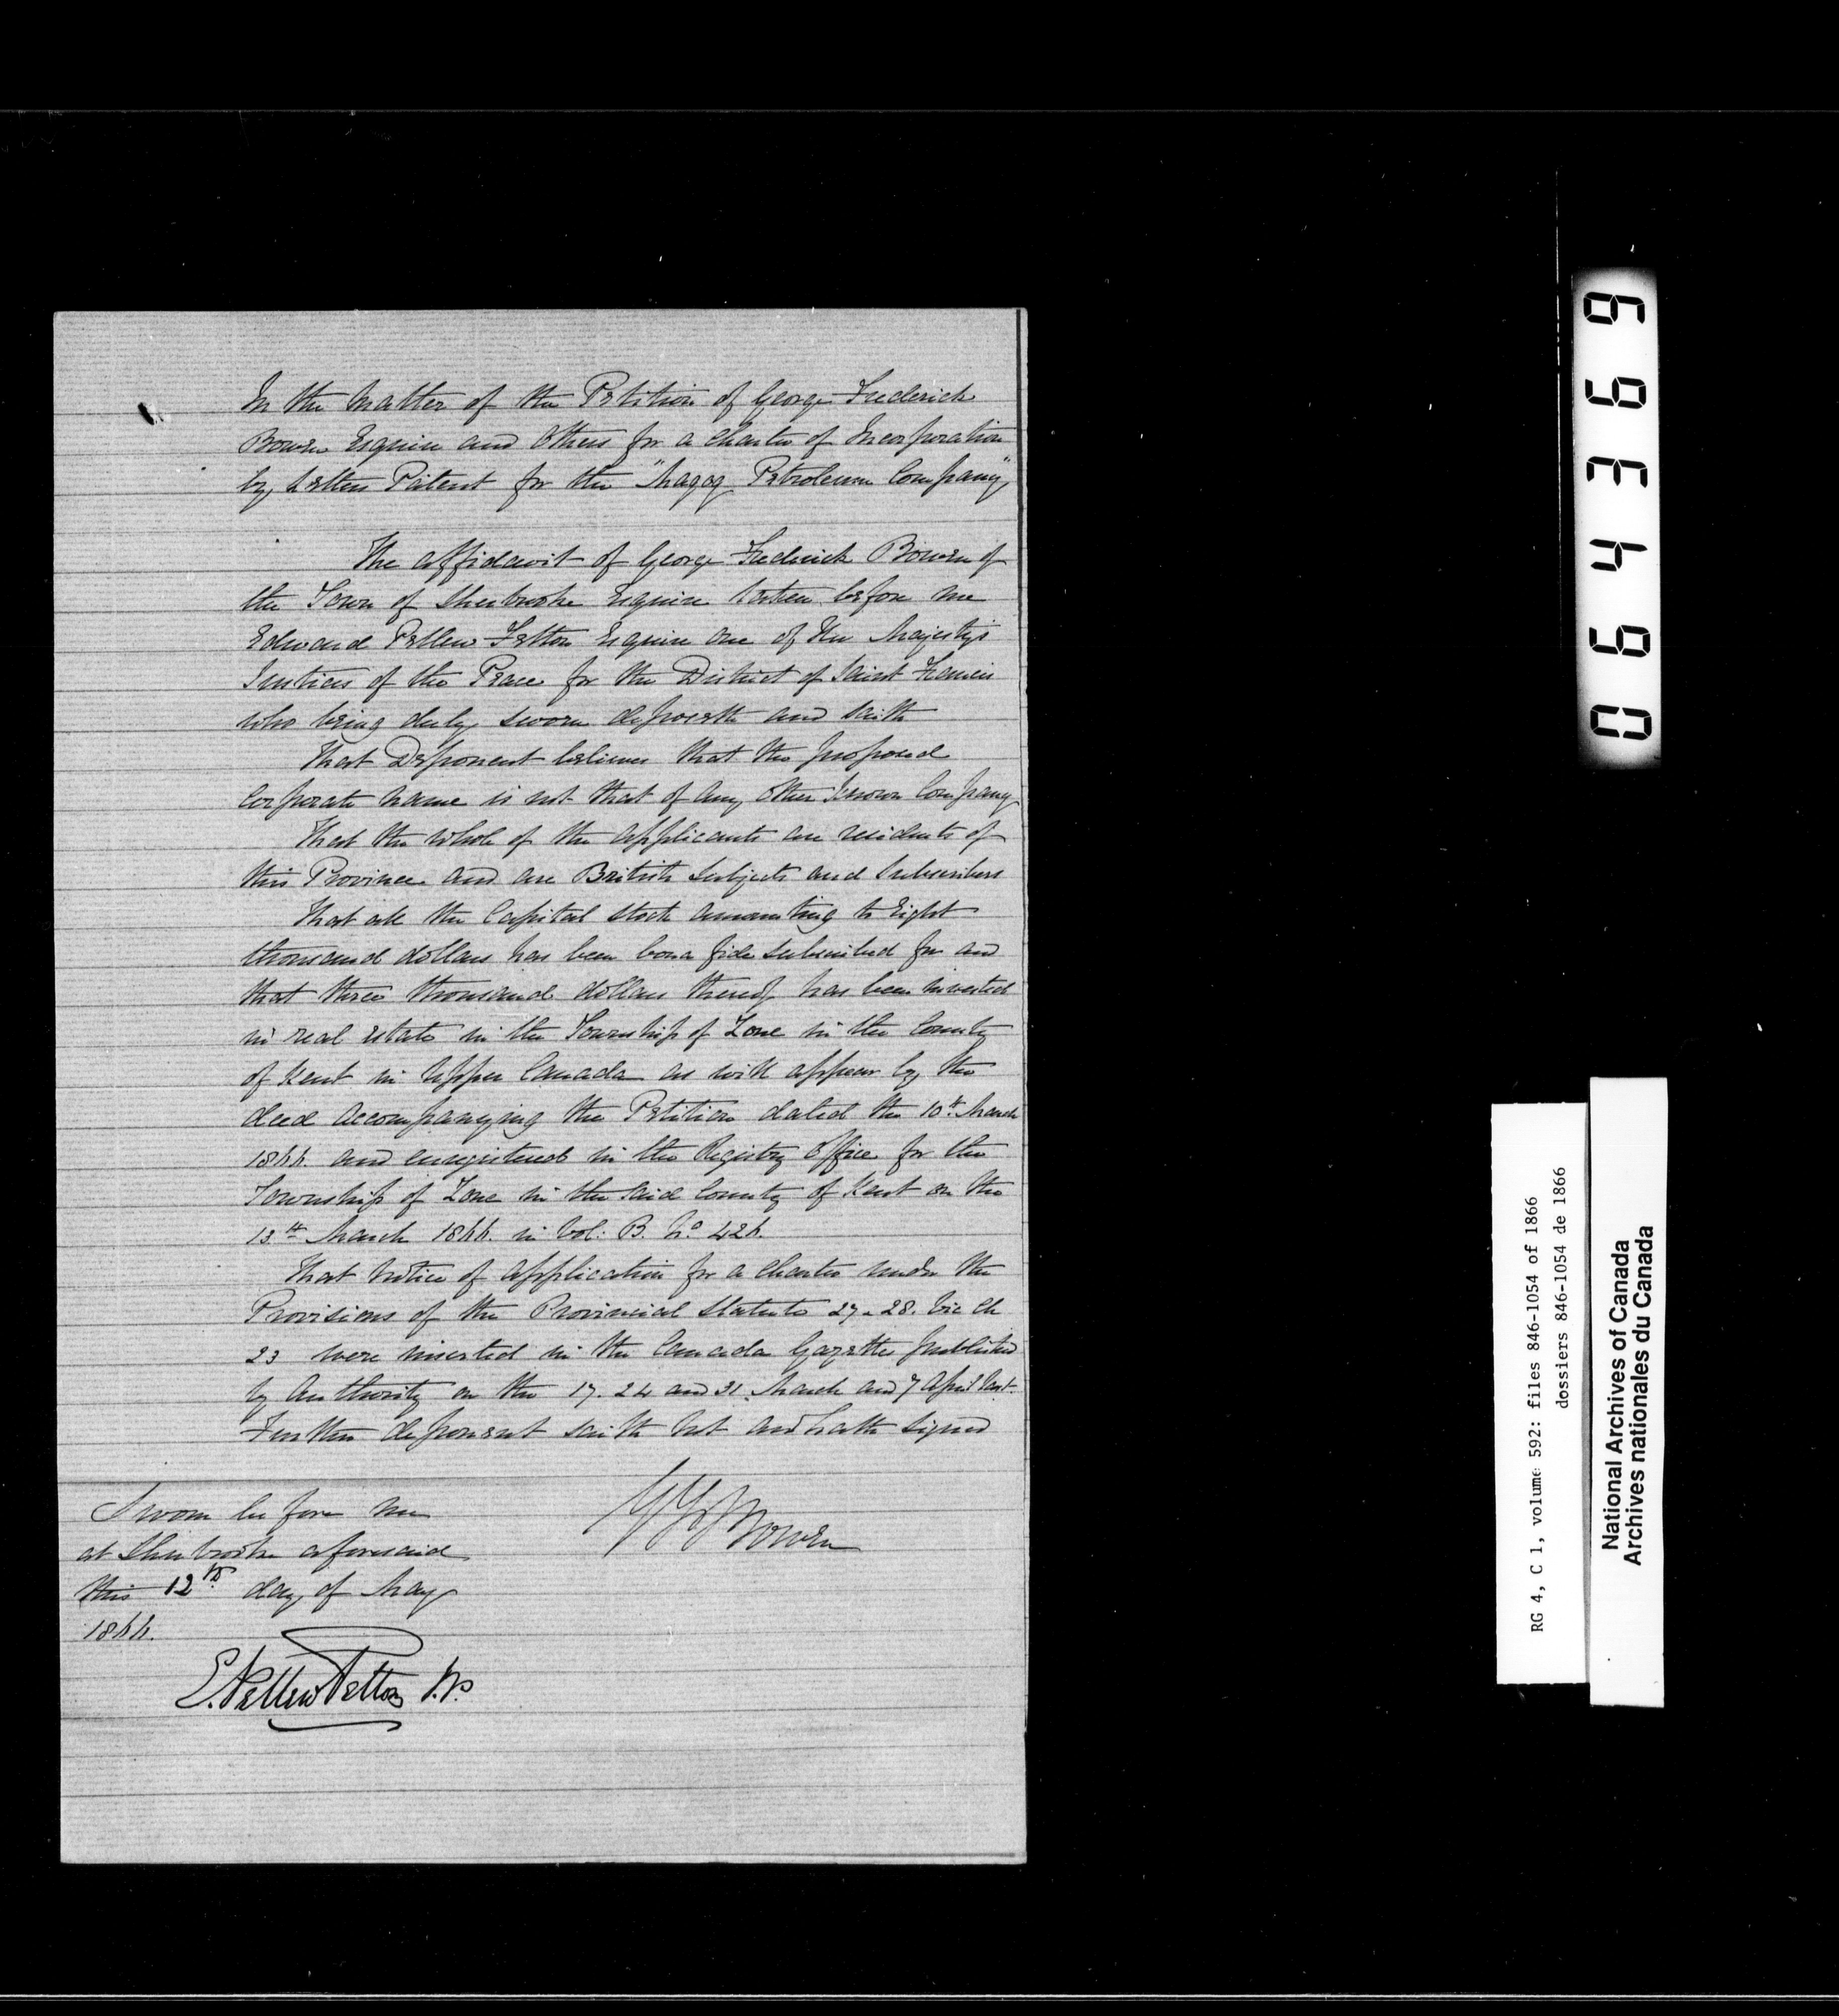 In the Matter of the Petition of George Frederick
Bowen Esquire and Others for a Charter of Incorporation
by Letters Patent for the "Magog Petroleum Company"
The affidavit of George Frederick Bowen of
the Town of Sherbrooke Esquire taken before me
Edward Pellew Felton Esquire one of Her Majesty's
Justices of the Peace for the District of Saint Francis
who being duly sworn deposeth and saith
That Deponent believes that the proposed
Corporate name is not that of any other known Company
That the whole of the applicants are residents of
this Province and are British Subjects and Subscribers
That all the Capital Stock amounting to Eight
thousand dollars has been bona fide subscribed for and
that three thousand dollars thereof has been invested
in real estate in the Township of Zone in the County
of Kent in Upper Canada as will appear by the
deed accompanying the Petition dated the 10th March
1866. and enregistered in the Registry Office for the
Township of Zone in the said County of Kent on the
13th March 1866. in Vol: B. No 426.
That Notice of application for a Charter under the
Provisions of the Provincial Statute 27-28. Vic Ch
23 were inserted in the Canada Gazette published
by Authority on the 17. 24 and 31. March and 7 April last.
Further deponent saith not and hath signed
Sworn before me
at Sherbrooke aforesaid
this 12th day of May
1866.
G F Bowen
E. Pellew Felton J.P.
064369
RG 4, C 1, volume 592: files 846-1054 of 1866
dossiers 846-1054 de 1866
National Archives of Canada
Archives nationales du Canada